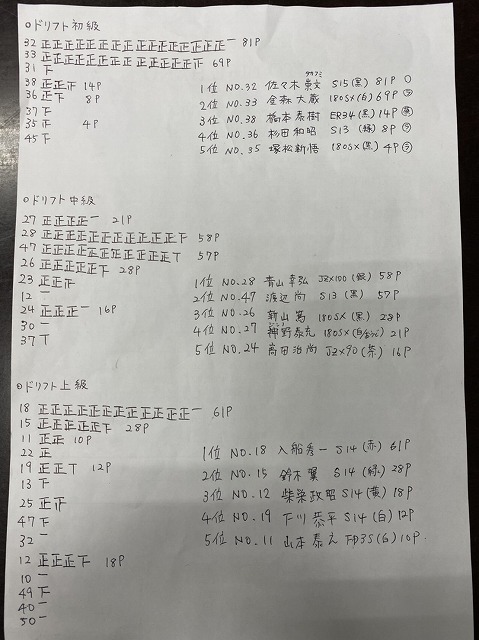 ○ドリフト初級
32 正正正正正正正正正正正正正正正正一 81P
33 正正正正正正正正正正正正正正 69P
31 下
38 正正下 14P
36 正下 8P
37 下
35 正 4P
45 下
1位 NO.32 佐々木 貴文 S15(黒) 81P
2位 NO.33 金森 大蔵 180SX(白) 69P
3位 NO.38 橋本 泰樹 ER34(黒) 14P
4位 NO.36 杉田 和昭 S13 (緑) 8P
5位 NO.35 塚松新悟 180SX(黒) 4P
○ドリフト中級
27 正正正正一 21P
28 正正正正正正正正正正正下 58P
47 正正正正正正正正正正正T 57P
26 正正正正正下 28P
23 正正下
12 一
24 正正正一 16P
30 一
37 T
1位 NO.28 青山 幸弘 JZX100 (銀) 58P
2位 NO.47 渡辺 尚 S13 (黒) 57P
3位 NO.26 新山 篤 180SX (黒) 28P
4位 NO.27 神野泰充 180SX 21P
5位 NO.24 高田治尚 JZX90(茶) 16P
○ドリフト上級
18 正正正正正正正正正正正正一 61P
15 正正正正正下 28P
11 正正 10P
22 正
19 正正T 12P
13 下
25 正正
47 下
32 一
12 正正正下 18P
10 一
49 下
40 一
50 一
1位 NO.18 入船秀一 S14 (赤) 61P
2位 NO.15 鈴木 翼 S14 (緑) 28P
3位 NO.12 柴築政昭 S14(黄) 18P
4位 NO.19 下川 恭平 S14 (白) 12P
5位 NO.11 山本 泰之 FD3S(白) 10P